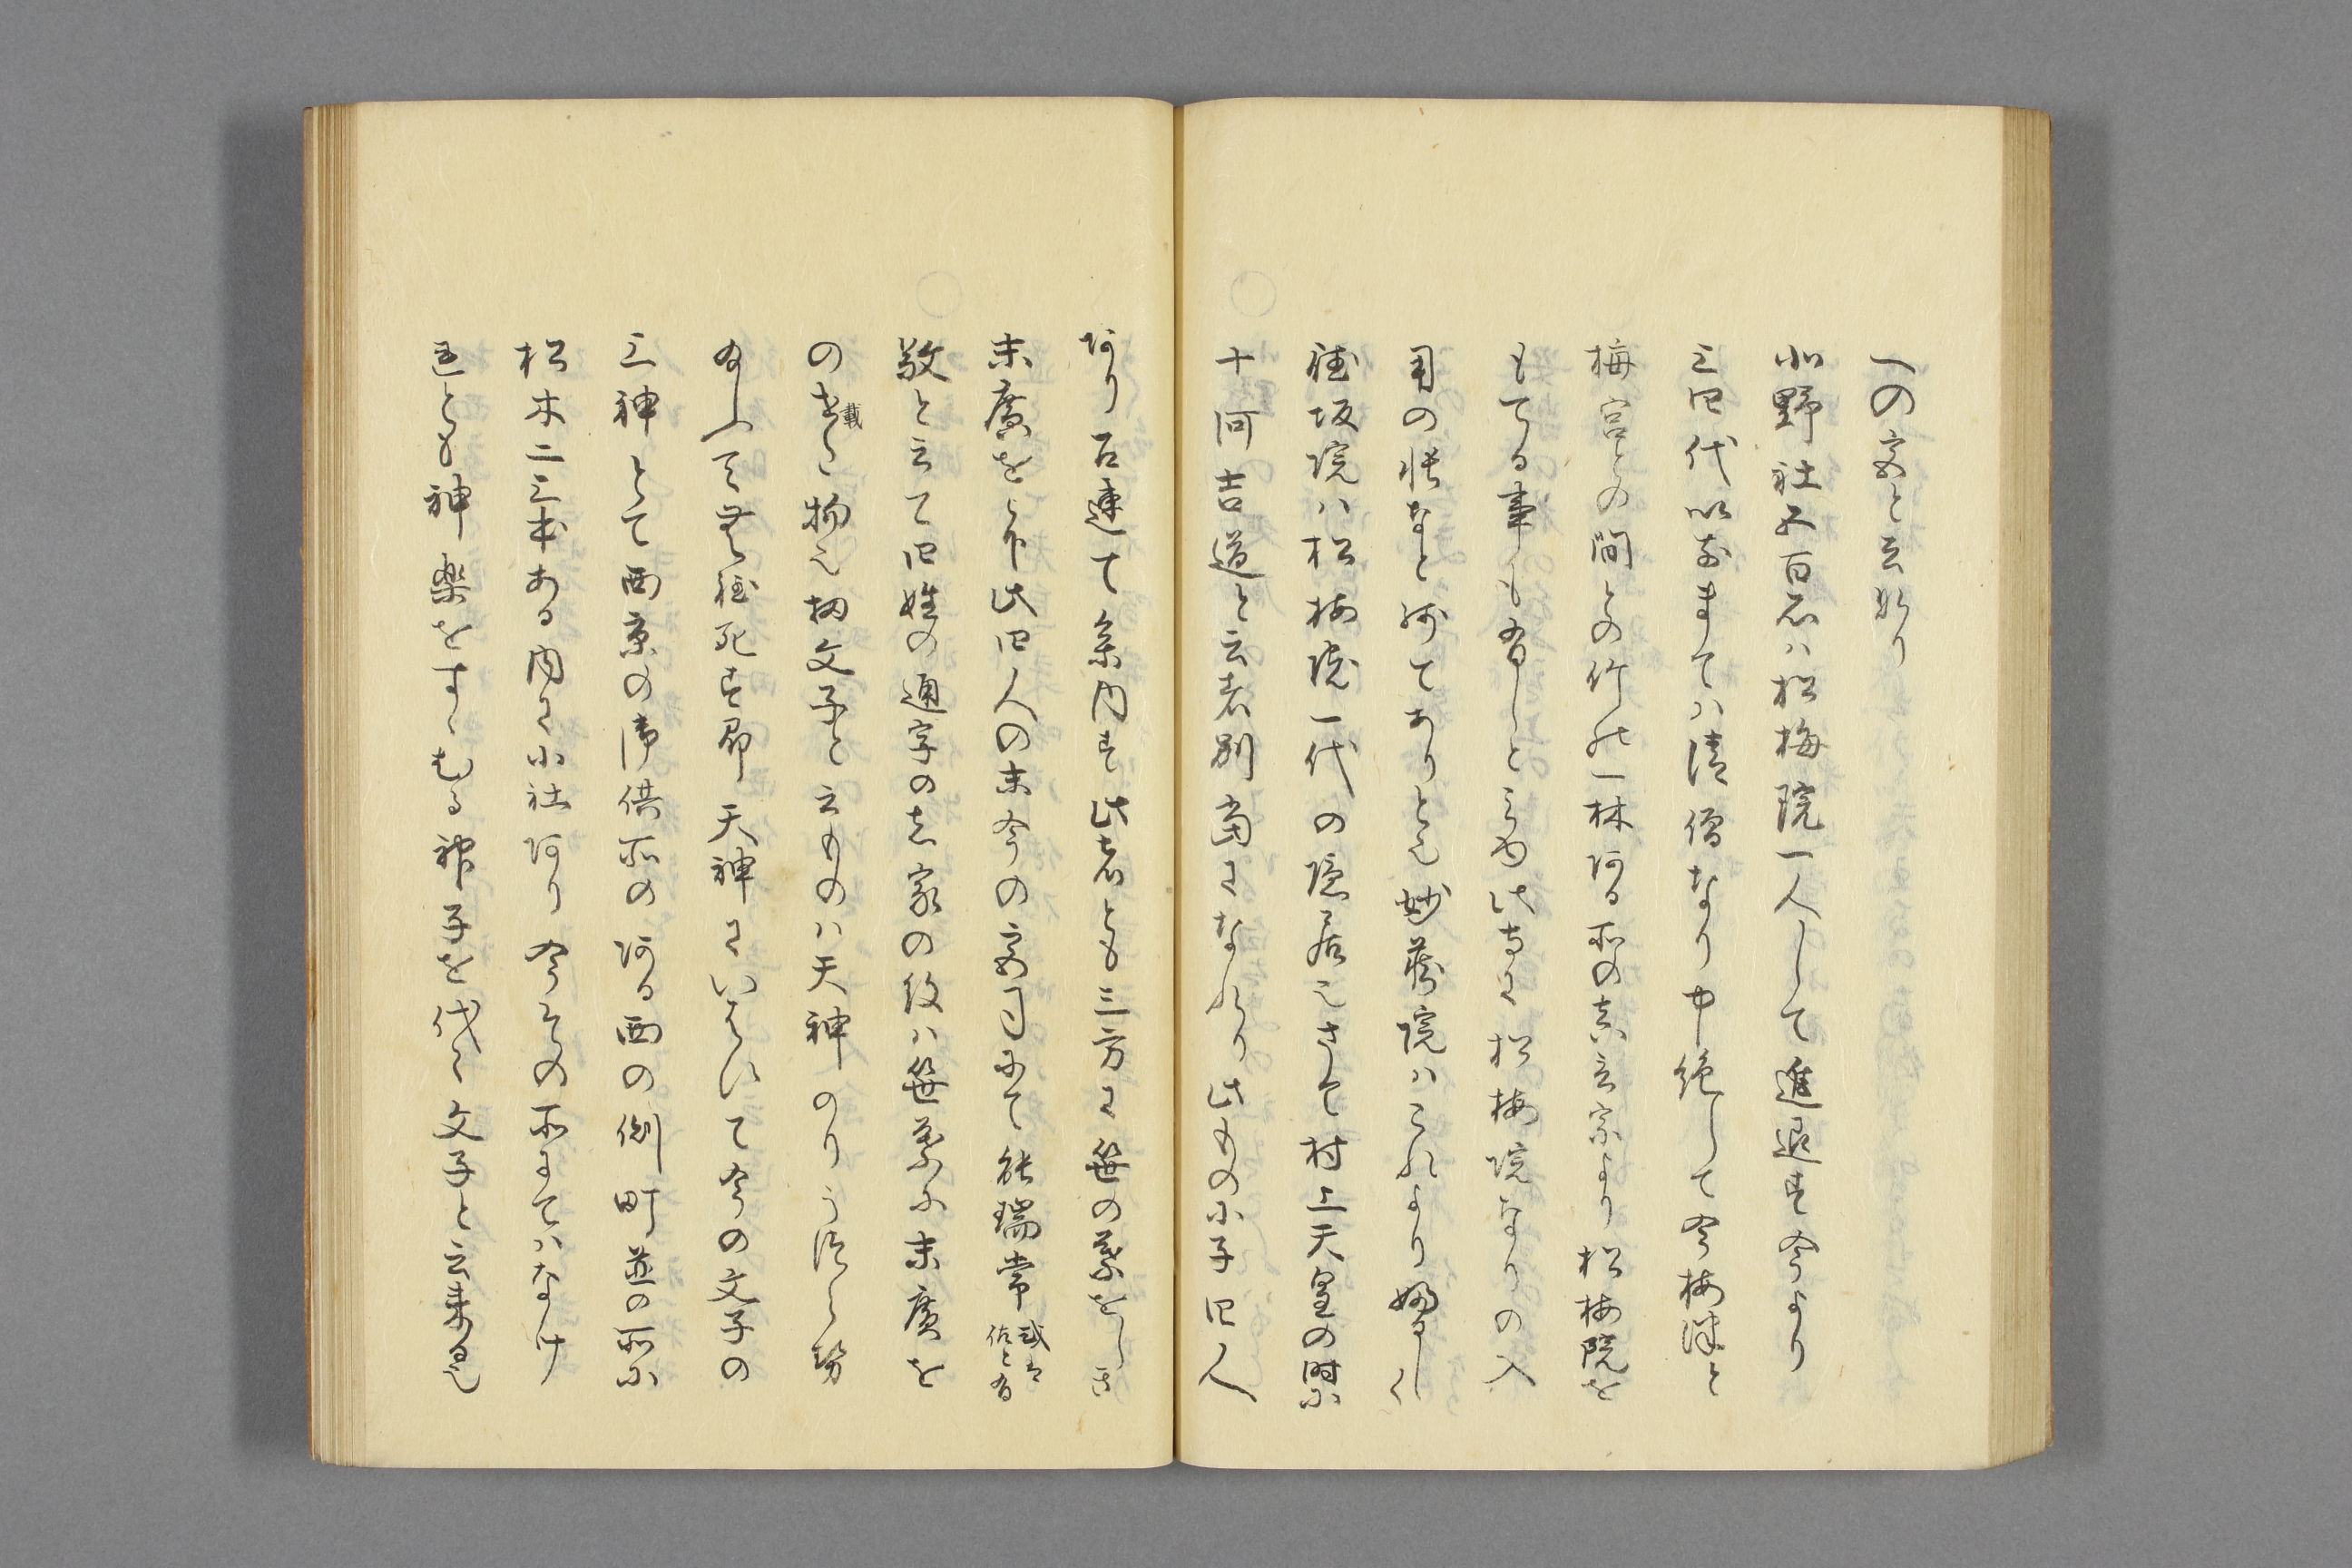 一の家と云物り
北野社五百石ハ松梅院一人して進退す今より
三四代以前まてハ清僧なり中絶して今梅津と
梅宮との間との竹の一林阿る所の真言宗より松梅院を
もてる事も有しと云ゆ此寺に松梅院なりの入
用の帳なと納てありとそ妙蔵院ハこれより婦るし
徳坂院ハ松梅院一代の隠居也さて村上天皇の時に
十河吉道と云者別当になれり此ものに子四人
阿り召連て参内す此者とも三方に笹の葉をしき
末廣を下此四人の末今の家司にて能瑞常 或ハ佐と有
敬と云て四姓の通字の者家の紋ハ笹葉に末廣を
のせ載たる物也扨文子と云ものハ天神のりうほく勢
給ふて無程死す即天神にいはいて今の文子の
三神とて西京の御供所の阿る西の側町並の所に
松木二三本ある内に小社阿り今その所にてハなけ
れとも神楽をすゝむる神子を代々文子と云来る也